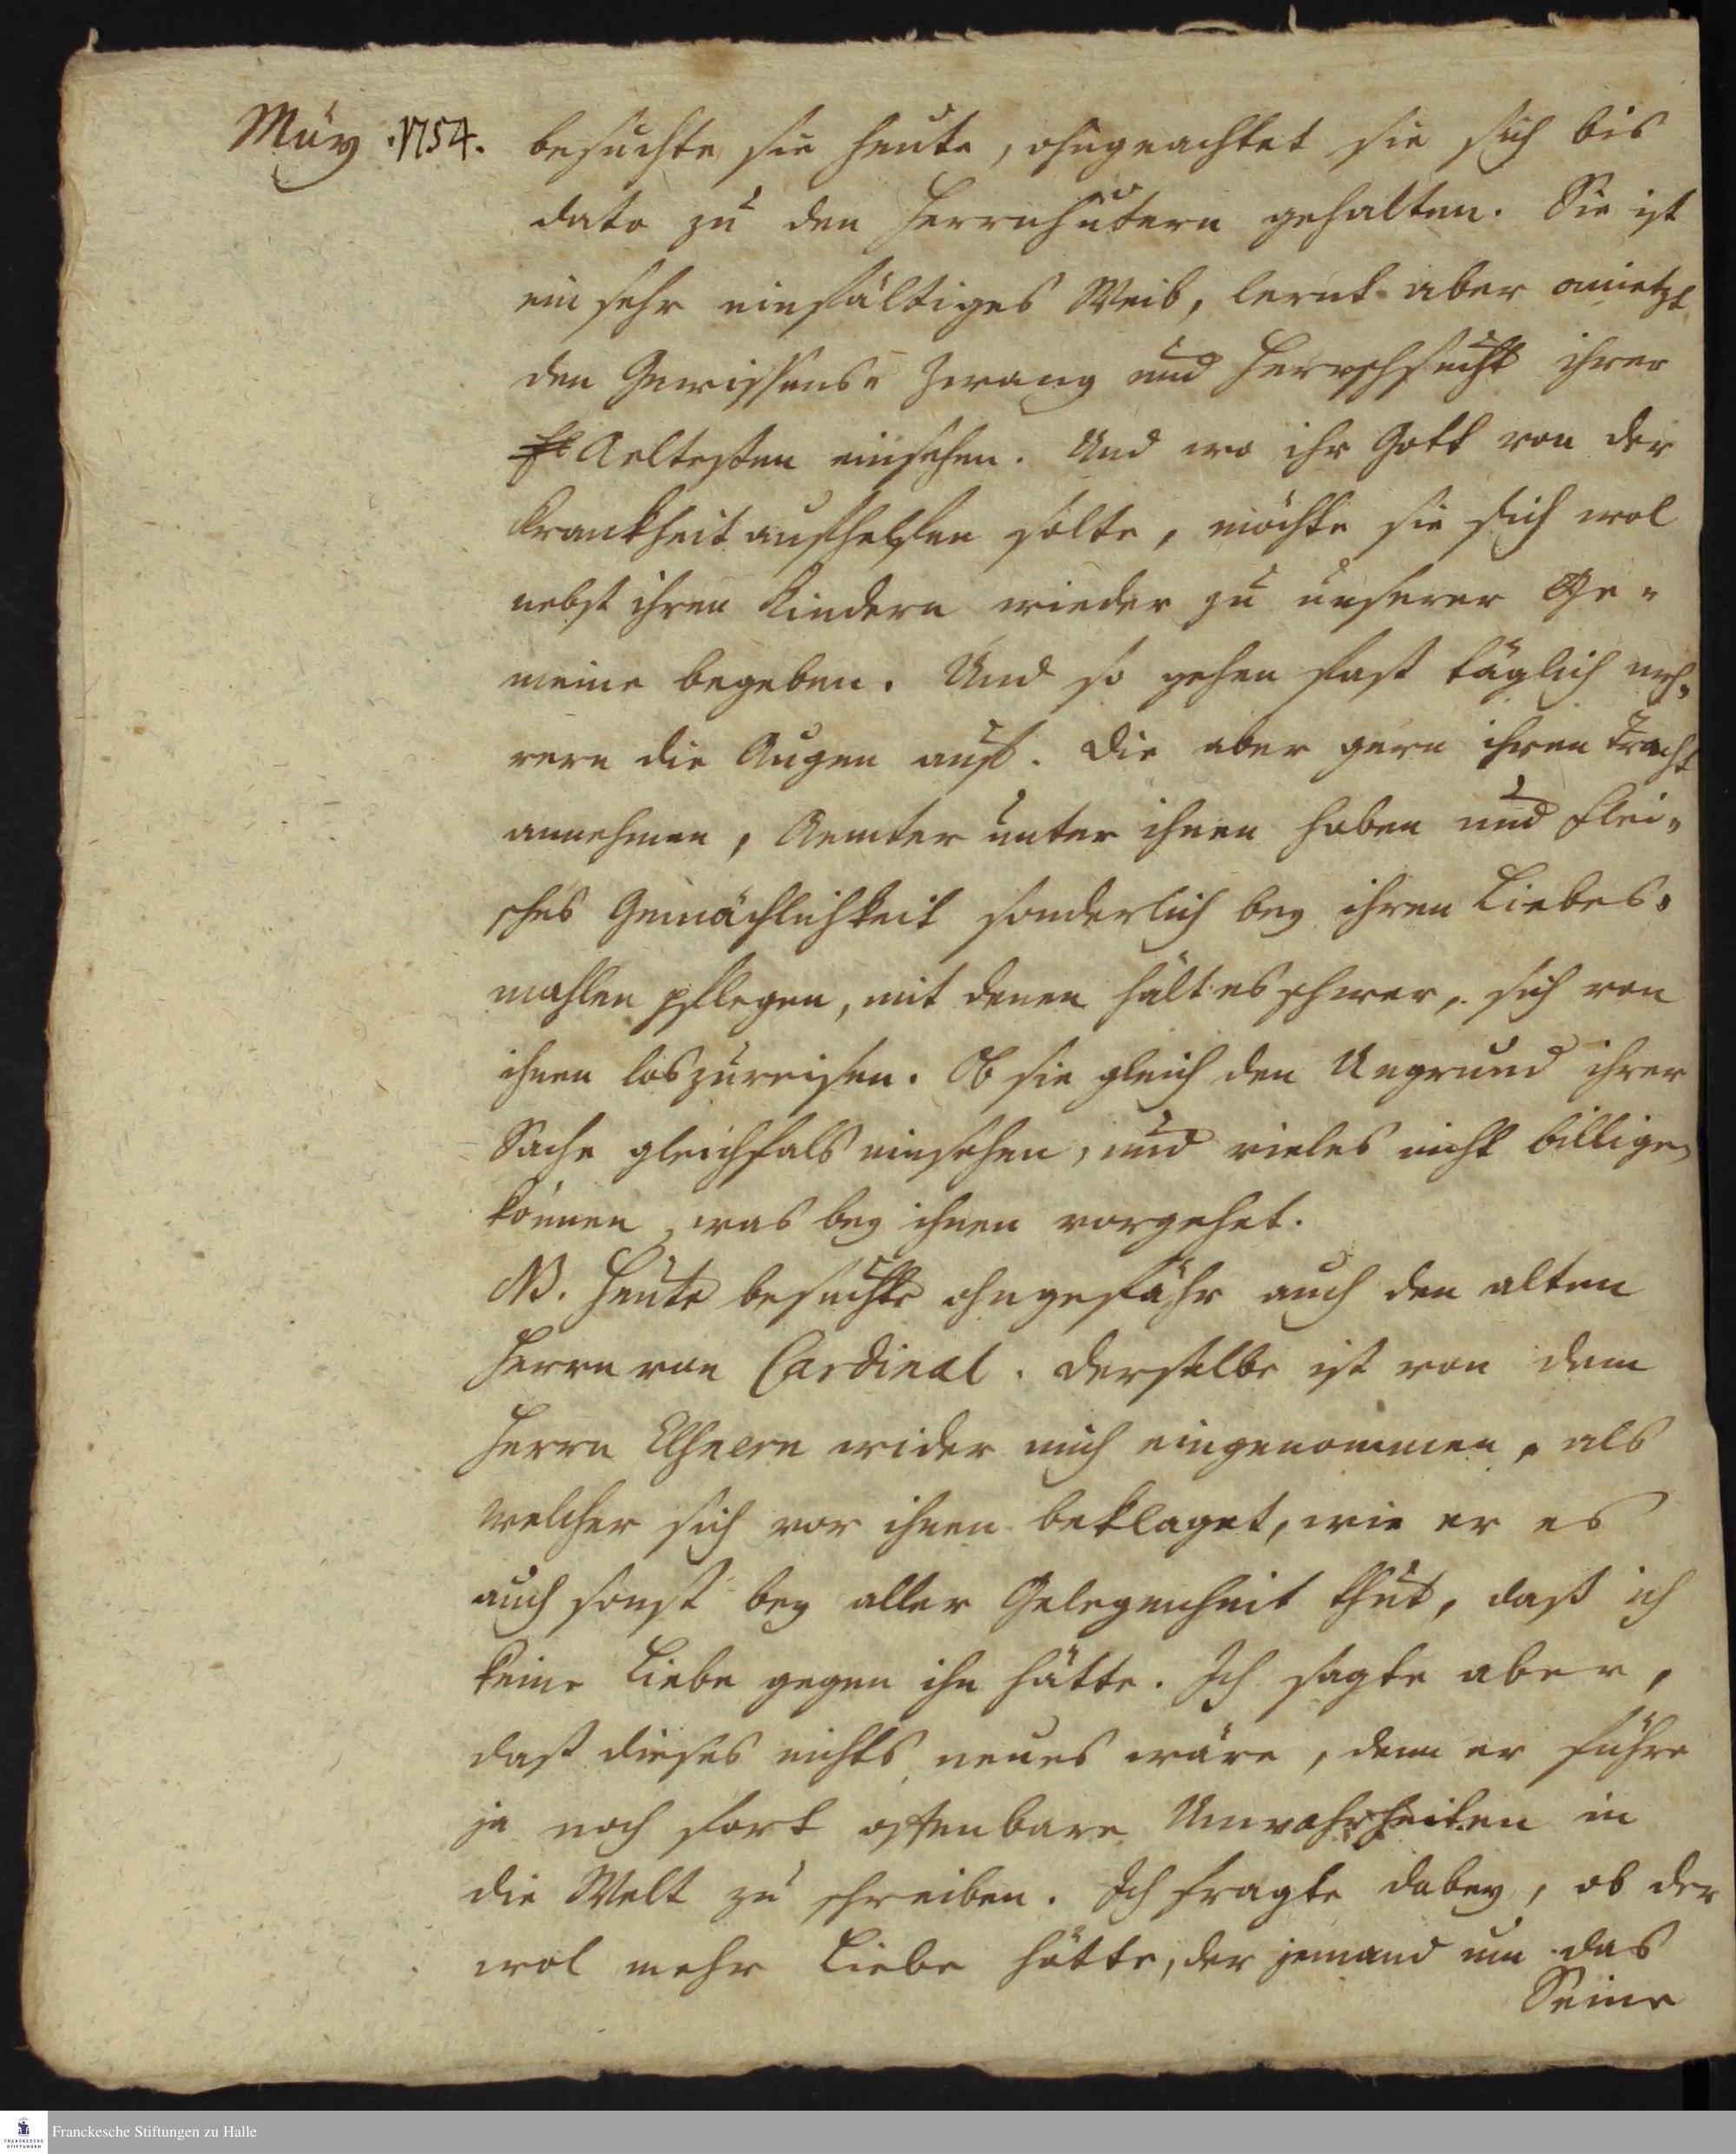 May. 1754. besuchte sie heute, ohngeachtet sie sich bis
dato zu den Herrnhutern gehalten. Sie ist
ein sehr einfältiges Weib, lernt aber anietzt
den Gewissens- Zwang und Herrschsucht ihrer
Aeltesten einsehen. Und wo ihr Gott von der
Krankheit aufhelfen solte, möchte sie sich wol
nebst ihren Kindern wieder zu unserer Ge-
meine begeben. Und so gehen fast täglich meh-
rern die Augen auf. Die aber gern ihren Tracht
annehmen, Aemter unter ihnen haben und Flei-
sches Gemächlichkeit sonderlich bey ihren Liebes-
mahlen pflegen, mit denen hält es schwer, sich von
ihnen loszureisen. Ob sie gleich den Ungrund ihrer
Sache gleichfals einsehen, und vieles nicht billigen
können, was bey ihnen vorgehet.
NB. Heute besuchte ohngefähr auch den alten
Herrn von Cardinal. Derselbe ist von dem
Herrn Elsnern wider mich eingenommen, als
welcher sich vor ihnen beklaget, wie er es
auch sonst bey aller Gelegenheit thut, daß ich
keine Liebe gegen ihn hätte. Ich sagte aber,
daß dieses nichts neues wäre, denn er führe
ja noch fort offenbare Unwahrheiten in
die Welt zu schreiben. Ich fragte dabey, ob der
wol mehr Liebe hätte, der jemand um das
Seine
Franckesche Stiftungen zu Halle